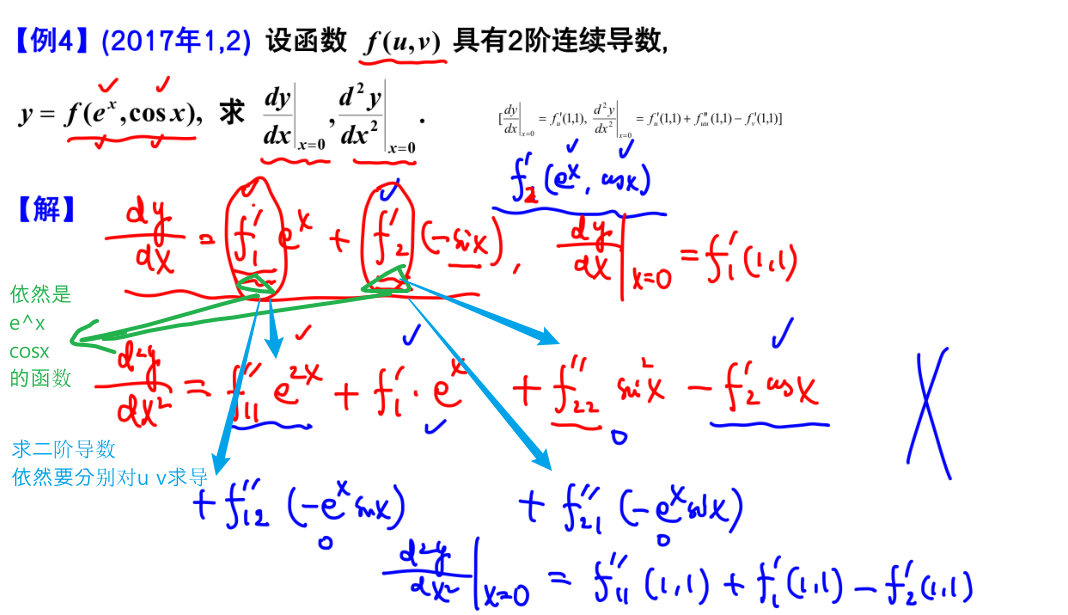 【例4】(2017年1,2) 设函数 f(u,v) 具有2阶连续导数,
y = f(e^x,cos x), 求 dy/dx|_{x=0}, d²y/dx²|_{x=0}.
[dy/dx|_{x=0} = f'_u(1,1), d²y/dx²|_{x=0} = f'_u(1,1) + f''_{uu}(1,1) − f'_v(1,1)]
f'_2(e^x, cosx)
【解】 dy/dx = f'_1 e^x + f'_2 (−sinx), dy/dx|_{x=0} = f'_1(1,1)
依然是
e^x
cosx
的函数
d²y/dx² = f''_{11} e^{2x} + f'_1 · e^x + f''_{22} sin²x − f'_2 cosx
0
求二阶导数
依然要分别对u v求导
+ f''_{12} (−e^x sinx) + f''_{21} (−e^x sinx)
0 0
d²y/dx²|_{x=0} = f''_{11}(1,1) + f'_1(1,1) − f'_2(1,1)